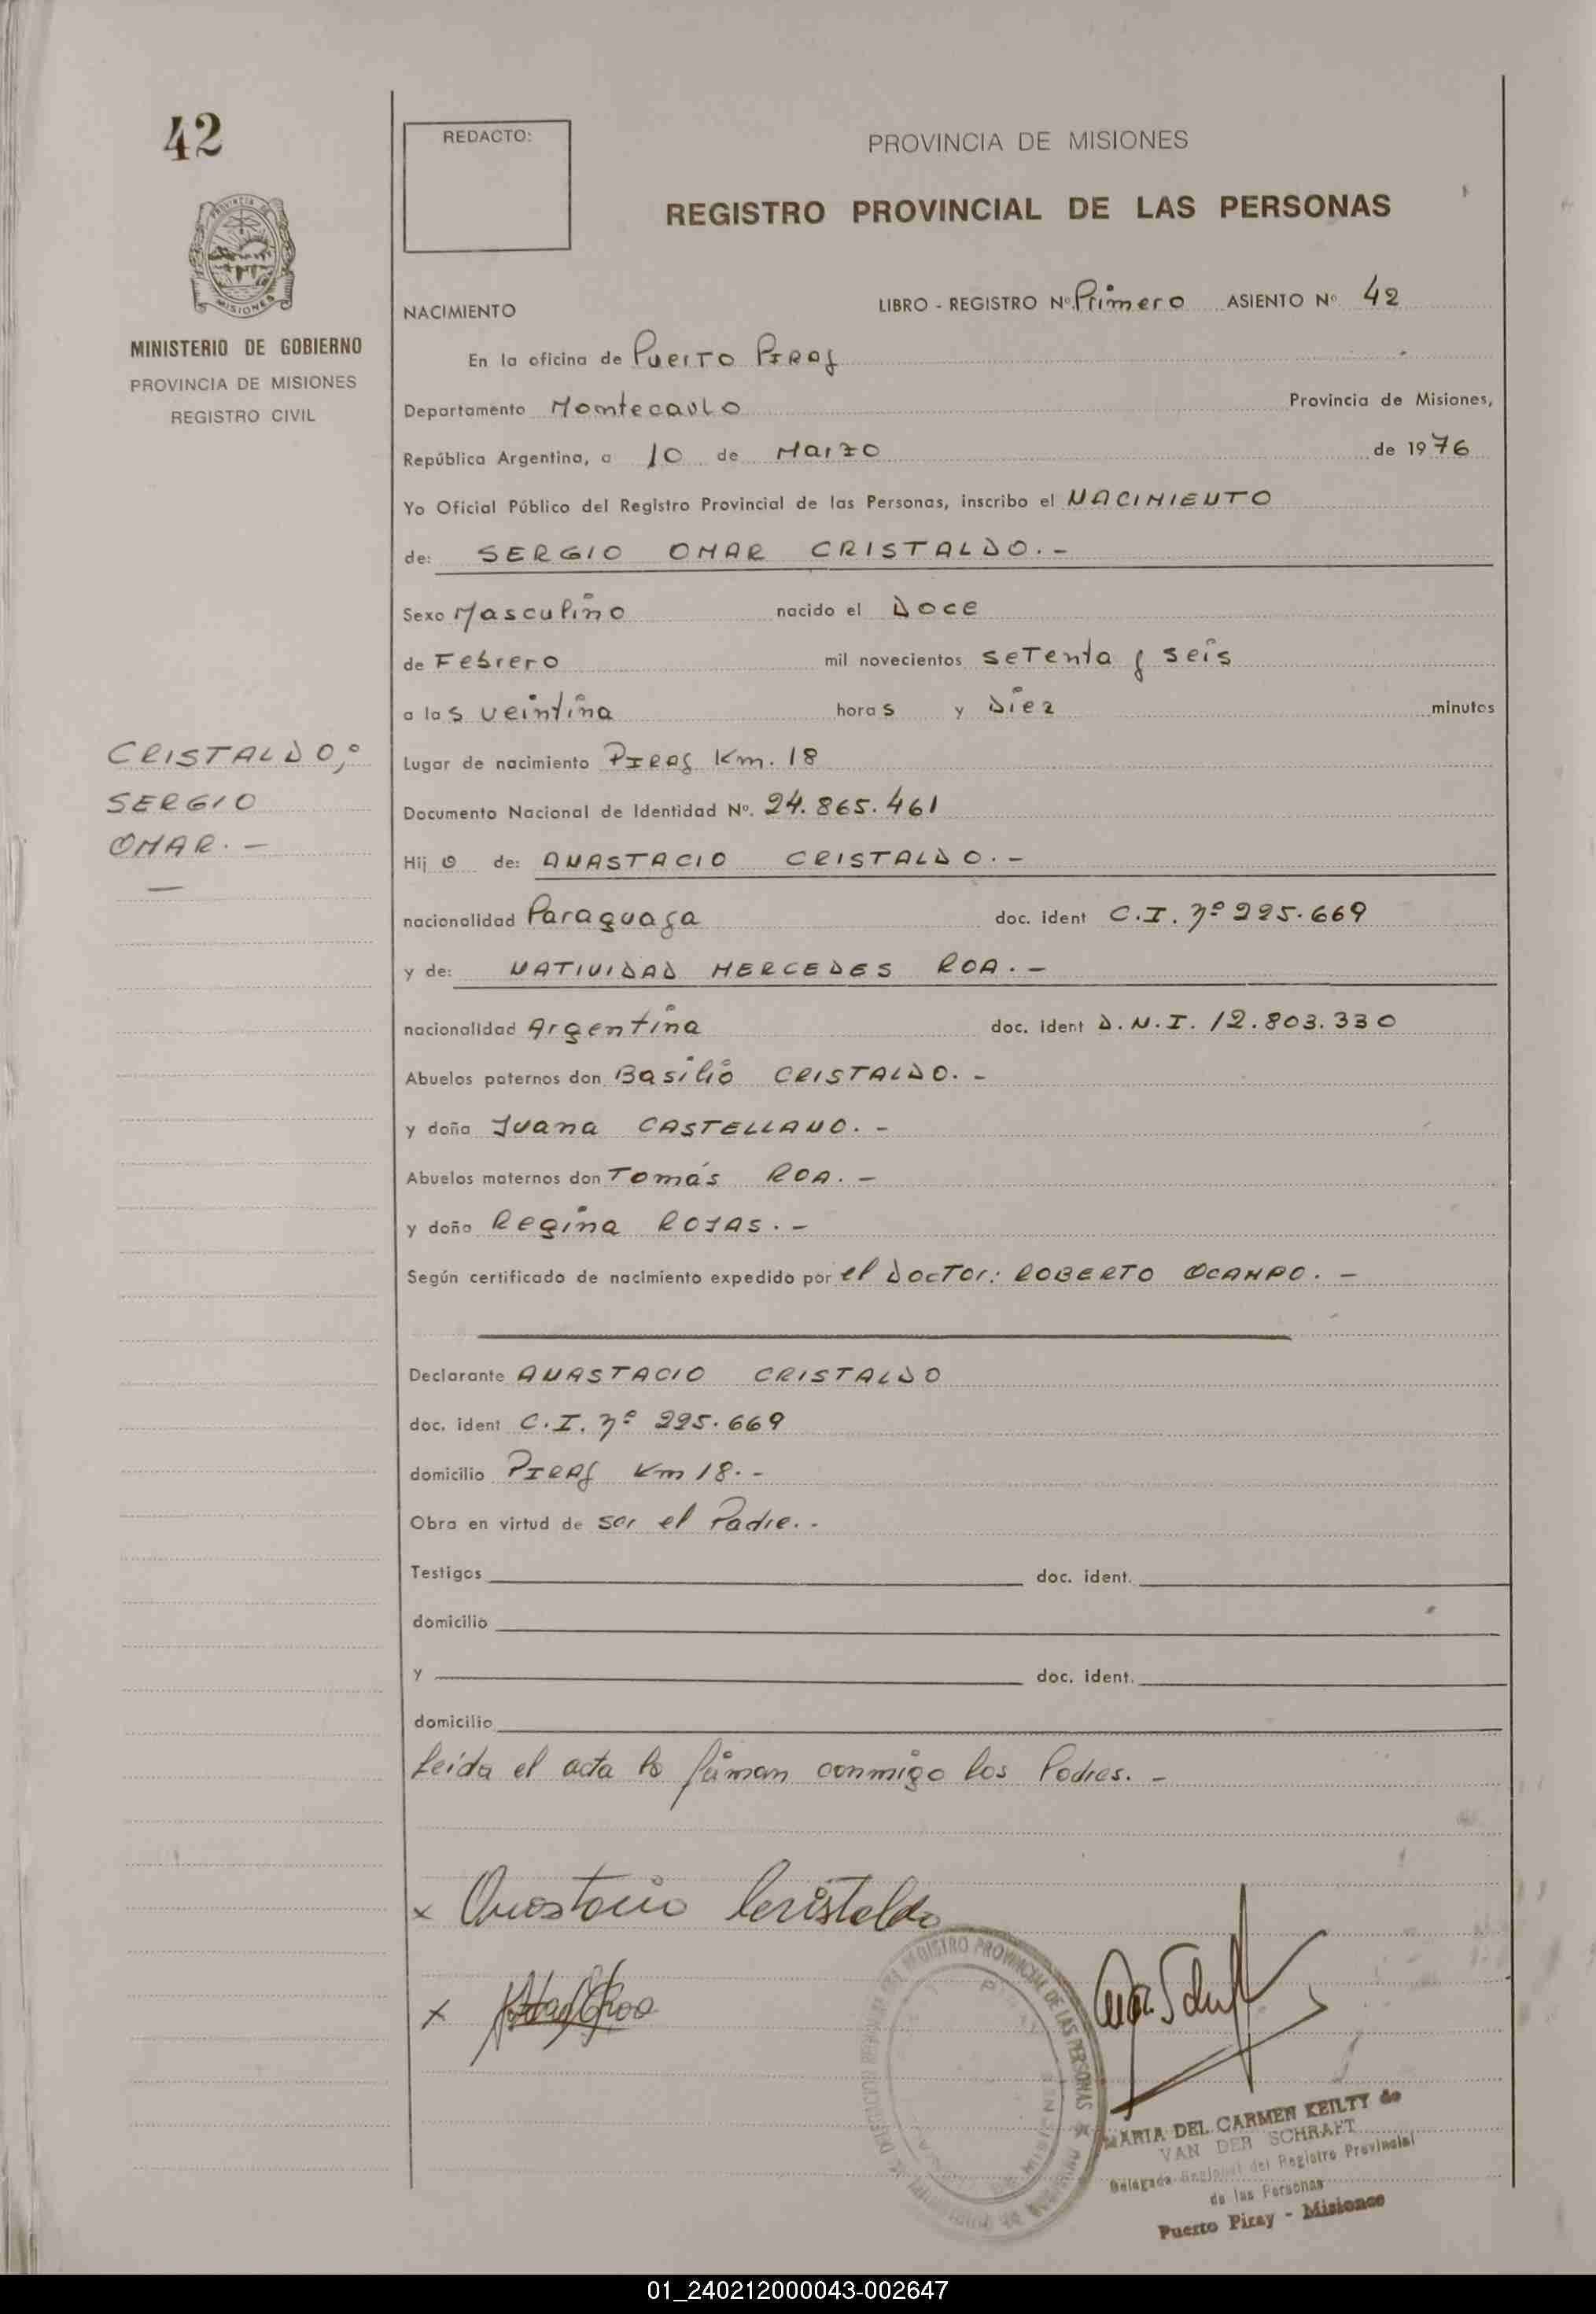 42
REDACTO:
PROVINCIA DE MISIONES
REGISTRO PROVINCIAL DE LAS PERSONAS
MISIONES
MINISTERIO DE GOBIERNO
PROVINCIA DE MISIONES
REGISTRO CIVIL
NACIMIENTO
LIBRO - REGISTRO Nº Primero ASIENTO Nº 42
En la oficina de Puerto PIRAY
Departamento Montecarlo Provincia de Misiones,
República Argentina, a 10 de Marzo de 1976
Yo Oficial Público del Registro Provincial de las Personas, inscribo el NACIMIENTO
de: SERGIO OMAR CRISTALDO.-
Sexo Masculino nacido el Doce
de Febrero mil novecientos setenta y seis
a las veintina horas y Diez minutos
Lugar de nacimiento PIRAY Km. 18
Documento Nacional de Identidad Nº. 24.865.461
CRISTALDO,
SERGIO
OMAR.-
Hijo de: ANASTACIO CRISTALDO.-
nacionalidad Paraguaya doc. ident C.I. nº 225.669
y de: NATIVIDAD MERCEDES ROA.-
nacionalidad Argentina doc. ident D.N.I. 12.803.330
Abuelos paternos don Basilio CRISTALDO.-
y doña Juana CASTELLANO.-
Abuelos maternos don Tomás ROA.-
y doña Regina ROJAS.-
Según certificado de nacimiento expedido por el Doctor: ROBERTO OCAMPO.-
Declarante ANASTACIO CRISTALDO
doc. ident C.I. nº 225.669
domicilio PIRAY Km 18.-
Obra en virtud de ser el Padre.-
Testigos doc. ident.
domicilio
y doc. ident.
domicilio
Leida el acta la firman conmigo los Padres.-
x Anastacio Cristaldo
x
REGISTRO PROVINCIAL DE LAS PERSONAS
MARIA DEL CARMEN KEILTY de
VAN DER SCHRAFT
Delegada Regional del Registro Provincial
de las Personas
Puerto Piray - Misiones
01_240212000043-002647